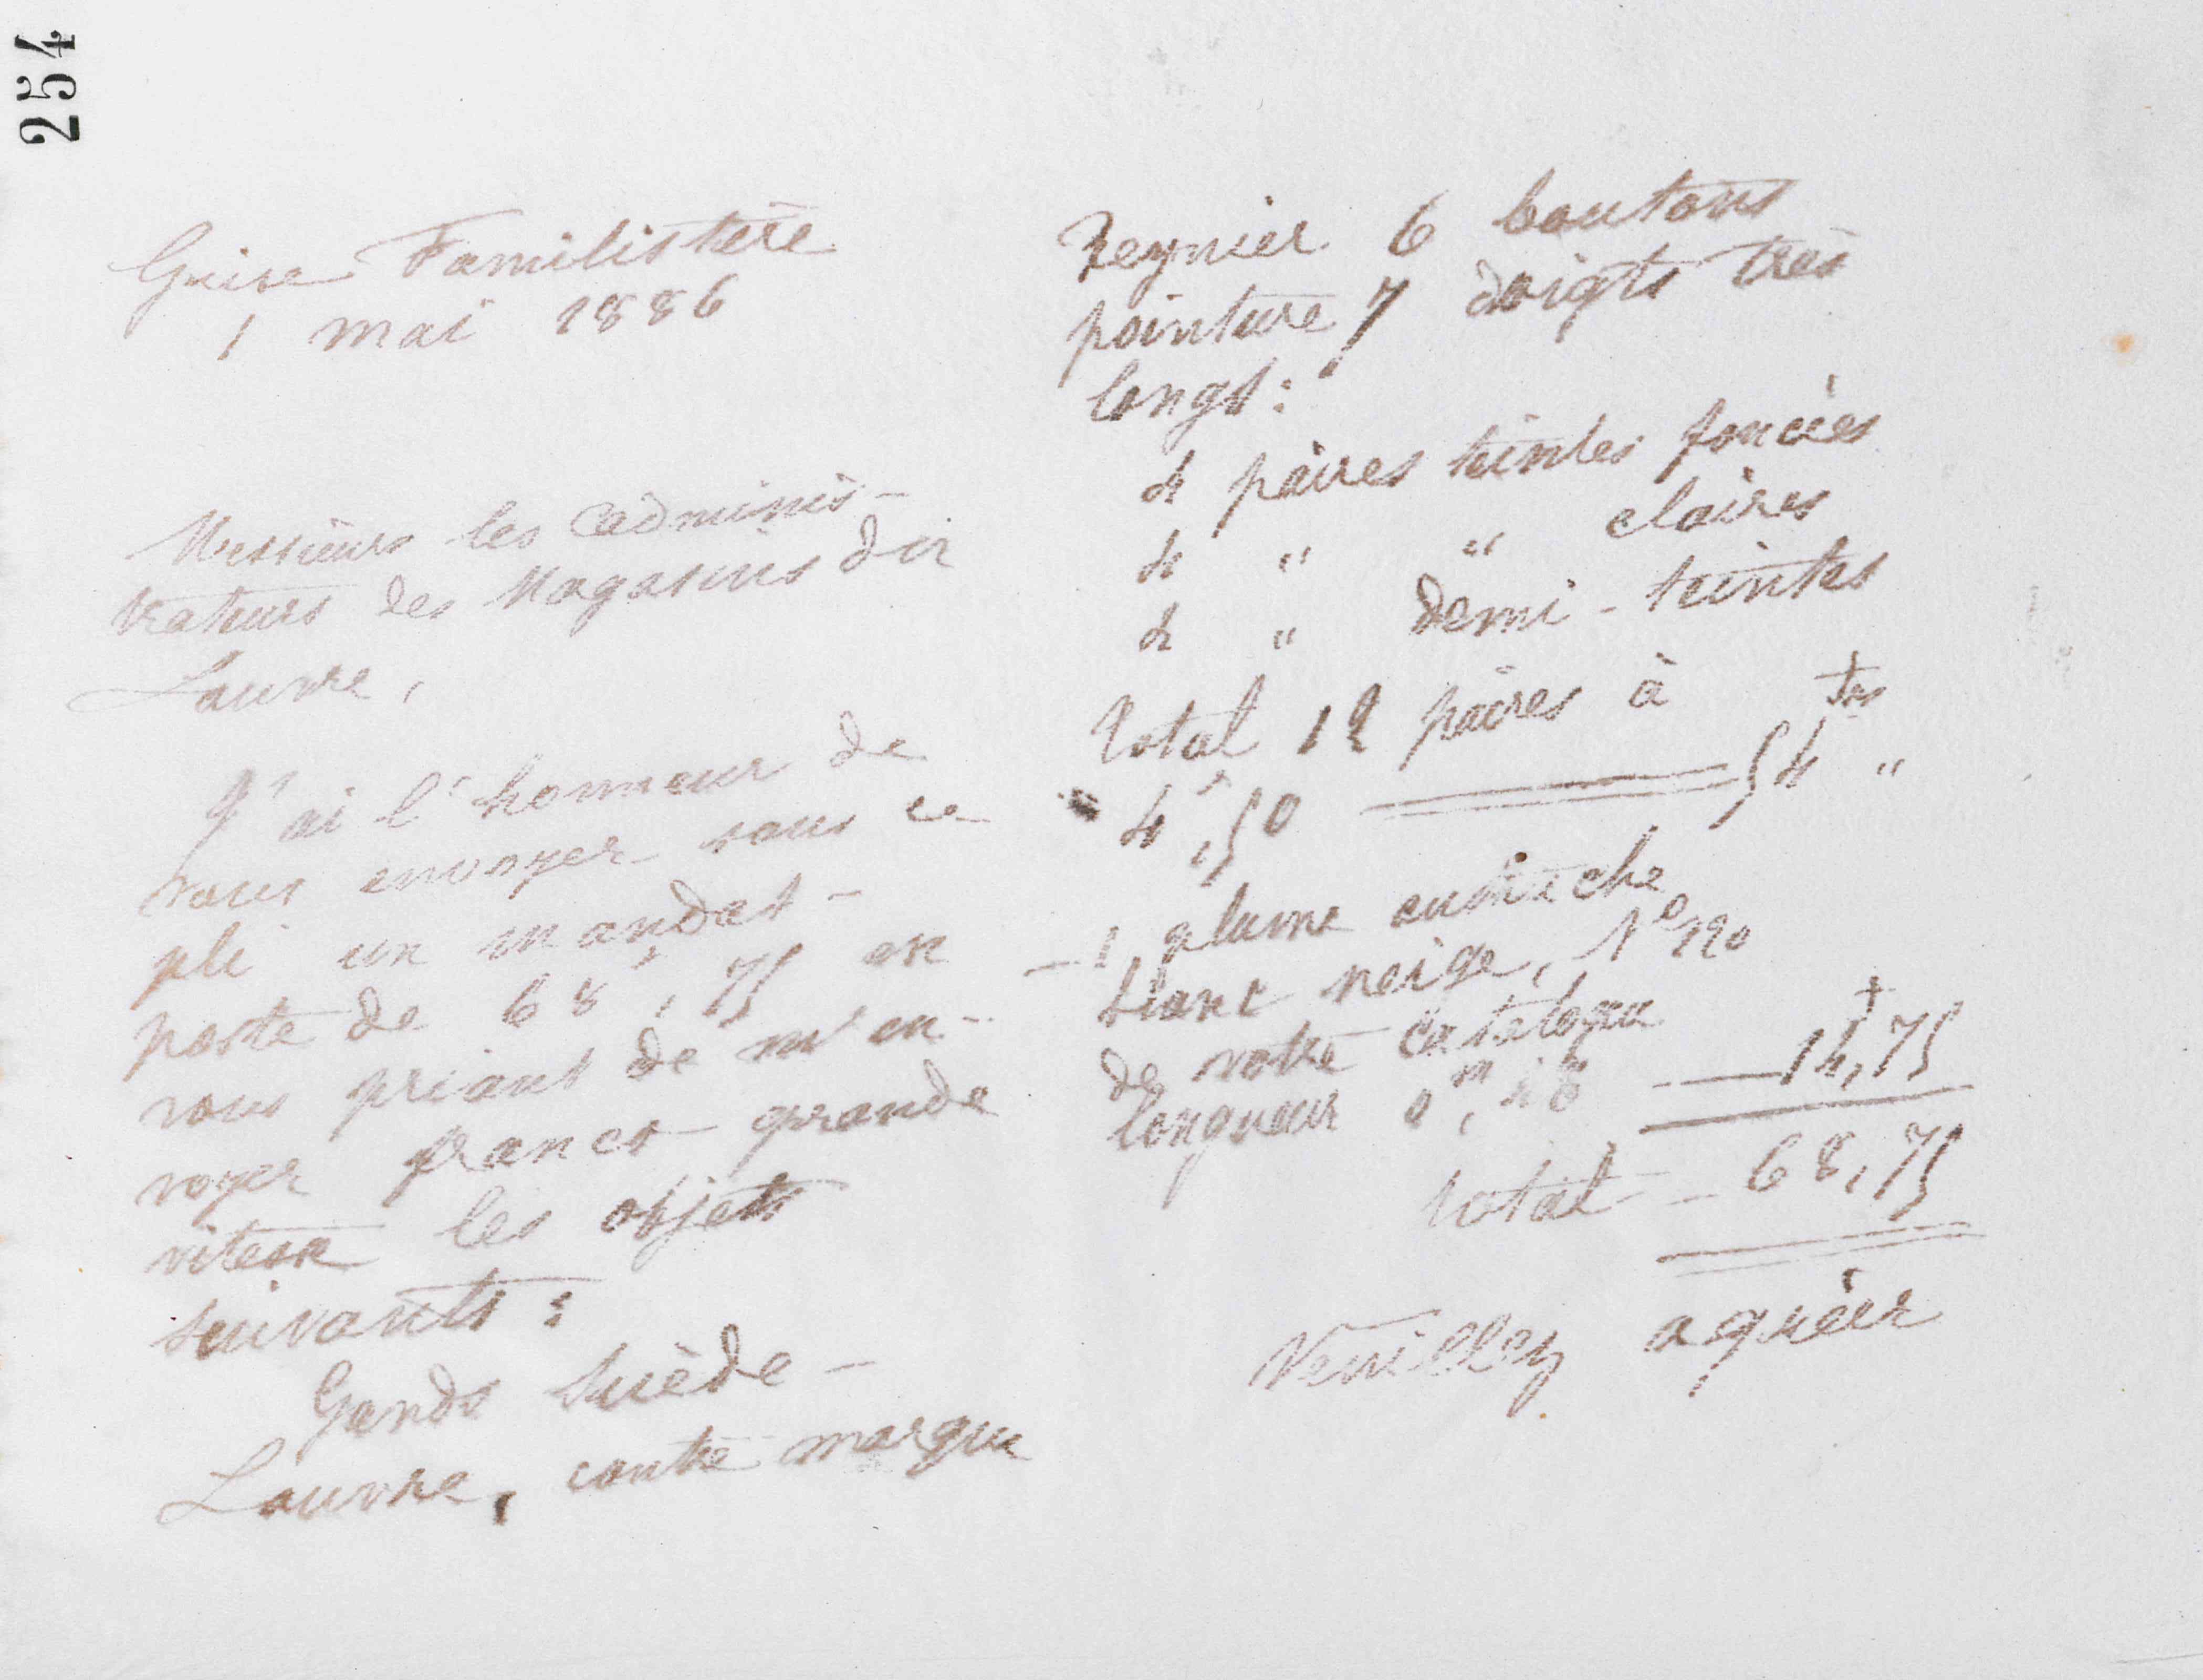 254
Guise Familistère
1 mai 1886
Messieurs les Adminis-
trateurs des Magasins du
Louvre,
J'ai l'honneur de
vous envoyer sous ce
pli un mandat-
poste de 68f,75 en
vous priant de m'en-
voyer franco grande
vitesse les objets
suivants :
Gands Suède -
Louvre, contre marque
Reynier 6 boutons
pointure 7 doigts très
longs :
4 paires teintes foncées
4 " " claires
4 " demi-teintes
Total 12 paires à
4f,50 54 frs "
- 1 plume autruche
blanc neige, No 120
de votre catalogue
longueur 0m,48 14f,75
total - 68,75
Veuillez agréer